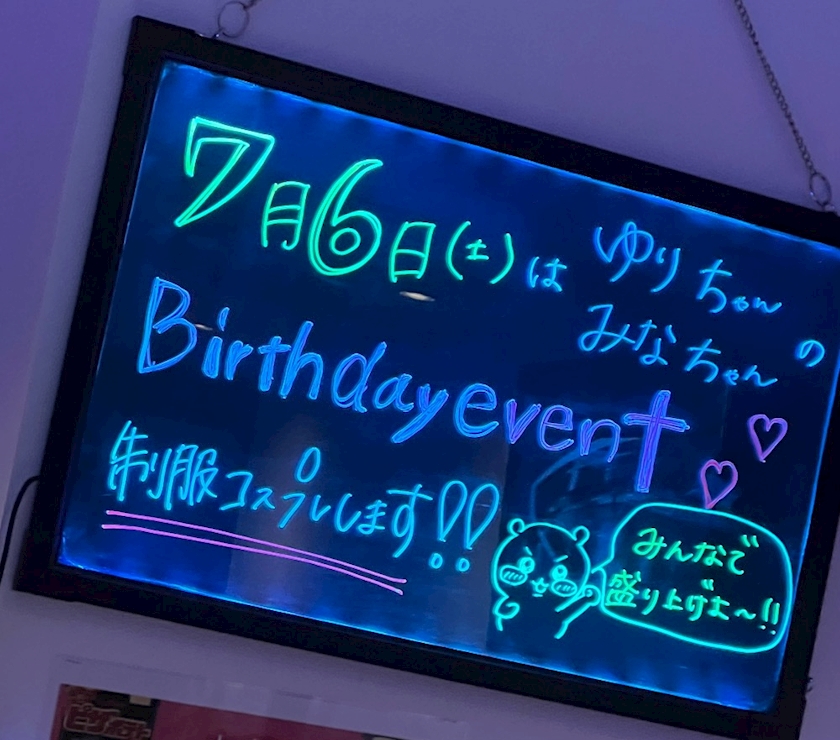 7月6日(土)は ゆりちゃん
みなちゃん の
Birthday event
制服コスプレします!!
みんなで
盛り上げよ〜!!